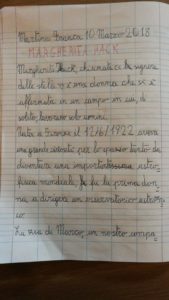 Martina Franca 10 Marzo 2018
MARGHERITA HACK
Margherita Hack, chiamata la signora
delle stelle, è una donna che si è
affermata in un campo in cui, di
solito, lavorano solo uomini.
Nata a Firenze il 12/6/1922 aveva
una grande per lo spazio tanto da
diventare una importantissima astro
fisica mondiale. fu la prima don
na a dirigere un osservatorio astrono
mico.
La zia di Marco, un nostro compa